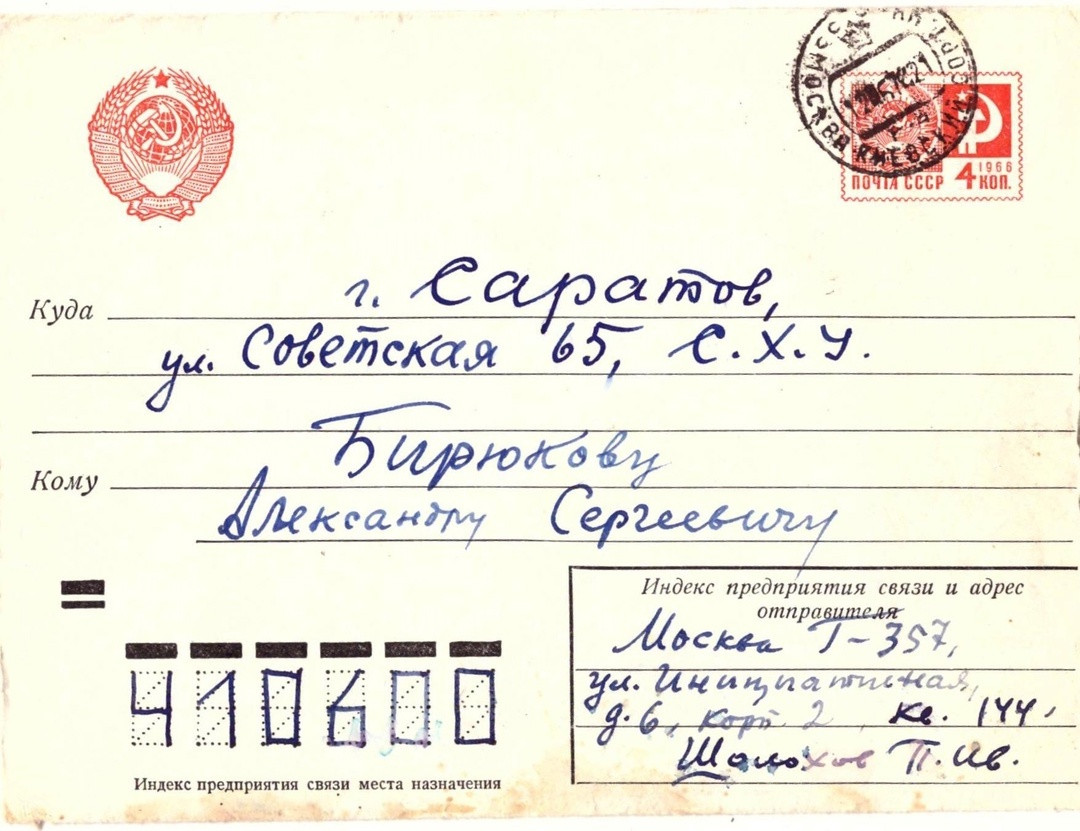 МОСКВА КИЕВСКИЙ
ПОЧТА СССР 4 КОП.
1966
Куда г. Саратов,
ул. Советская 65, С.Х.У.
Бирюкову
Кому
Александру Сергеевичу
Индекс предприятия связи и адрес
отправителя
Москва Г-357,
ул. Инициативная,
д. 6, корп. 2, кв. 144.
Шолохов П. Ив.
410600
Индекс предприятия связи места назначения